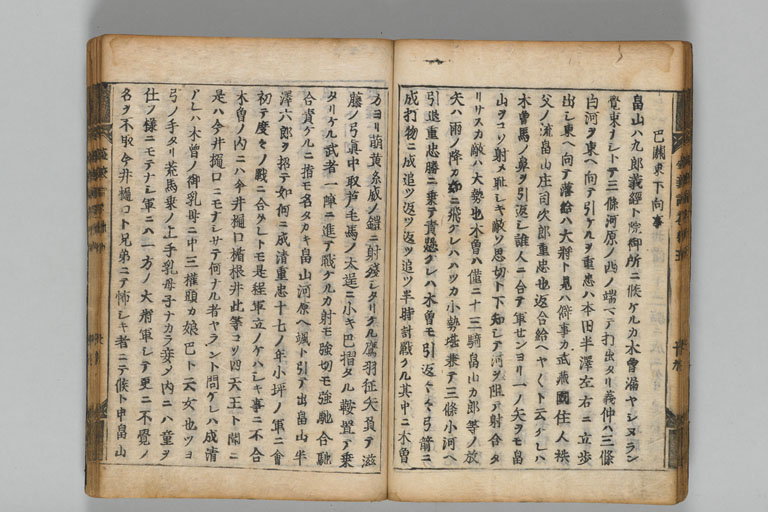 巴關東下向事
畠山ハ九郎義經ト院御所ニ候ケルカ木曽漏ヤシヌラン
覺束ナシトテ三條河原ノ西ノ端ヘテ打出タリ義仲ハ三條
白河ヲ東ヘ向テ引ケルヲ重忠ハ本田半澤左右ニ立歩
出シ東ヘ向テ落給ハ大將ト見ハ僻事カ武藏國住人秩
父ノ流畠山庄司次郎重忠也返合給ヘヤト云ケレハ
木曽馬ノ鼻ヲ引返シ誰人ニ合テ軍センヨリ一ノ矢ヲモ畠
山ヲコソ射メ耻シキ敵ソ思切ト下知シテ河ヲ阻テ射合タ
リサスカ敵ハ大勢也木曽ハ僅ニ十三騎畠山カ郎等ノ放
矢ハ雨ノ降カ如ニ飛ケレハハツカ小勢堪兼テ三條小河ヘ
引退重忠勝ニ乗テ責懸ケレハ木曽モ引返弓箭ニ
成打物ニ成追ツ返ツ返ツ追ツ半時計戰ケル其中ニ木曽
方ヨリ萌黄糸威ノ鎧ニ射殘シタリケル鷹羽征矢負テ滋
藤ノ弓眞中取芦毛馬ノ太逞ニ小キ巴摺タル鞍置テ乗
タリケル武者一陣ニ進テ戰ケルカ射モ強切モ強馳合馳
合責ケルニ指モ名タカキ畠山河原ヘ颯ト引テ出畠山半
澤六郎ヲ招テ如何ニ成清重忠十七ノ年小坪ノ軍ニ會
初テ度々ノ戰ニ合タレトモ是程軍立ノケハシキ事ニ不合
木曽ノ内ニハ今井樋口楯根井此等コソ四天王ト聞ニ
是ハ今井樋口ニモナシサテ何ナル者ヤラント問ケレハ成清
アレハ木曽ノ御乳母ニ中三權頭カ娘巴ト云女也ツヨ
弓ノ手タリ荒馬乗ノ上手乳母子ナカラ妾ノ内ニハ童ヲ
仕ノ様ニモテナシ軍ニハ一方ノ大將軍シテ更ニ不覺ノ
名ヲ不取今井樋口ト兄弟ニテ怖シキ者ニテ候ト申畠山